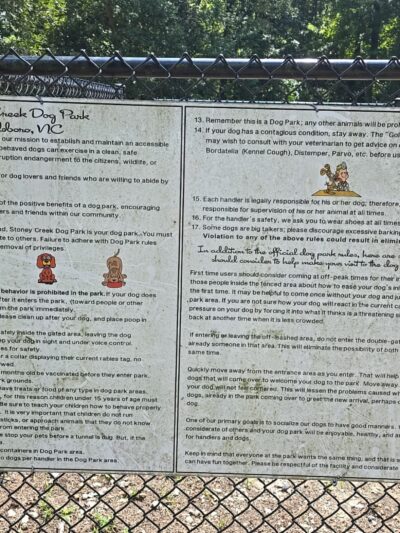 Creek Dog Park
sboro, NC
our mission to establish and maintain an accessible
behaved dogs can exercise in a clean, safe
ruption endangerment to the citizens, wildlife, or
or dog lovers and friends who are willing to abide by
of the positive benefits of a dog park, encouraging
ers and friends within our community.
nd, Stoney Creek Dog Park is your dog park. You must
te to others. Failure to adhere with Dog Park rules
removal of privileges.
behavior is prohibited in the park. If your dog does
fter it enters the park, (toward people or other
m the park immediately.
lease clean up after your dog, and place poop in
safely inside the gated area, leaving the dog
p your dog in sight and under voice control.
es for safety.
r a collar displaying their current rabies tag, no
wed.
months old be vaccinated before they enter park.
rk grounds.
have treats or food of any type in dog park areas.
, for this reason children under 15 years of age must
Be sure to teach your children how to behave properly
. It is very important that children do not run
sticks, or approach animals that they do not know
from entering the park.
se stop your pets before a tunnel is dug. But, if the
containers in Dog Park area.
o dogs per handler in the Dog Park area.
13. Remember this is a Dog Park; any other animals will be prohi
14. If your dog has a contagious condition, stay away. The "Gol
may wish to consult with your veterinarian to get advice on
Bordatella (Kennel Cough), Distemper, Parvo, etc. before us
15. Each handler is legally responsible for his or her dog; therefore,
responsible for supervision of his or her animal at all times.
16. For the handler's safety, we ask you to wear shoes at all times
17. Some dogs are big talkers; please discourage excessive barking
Violation to any of the above rules could result in elimin
In addition to the official dog park rules, here are
should consider to help make your visit to the dog
First time users should consider coming at off-peak times for their
those people inside the fenced area about how to ease your dog's in
the first time. It may be helpful to come once without your dog and ju
park area. If you are not sure how your dog will react to the current co
pressure on your dog by forcing it into what it thinks is a threatening si
back at another time when it is less crowded.
If entering or leaving the off-leashed area, do not enter the double-gat
already someone in that area. This will eliminate the possibility of both
same time.
Quickly move away from the entrance area as you enter. That will help
dogs that will come over to welcome your dog to the park. Move away
your dog will not feel cornered. This will lessen the problems caused wh
dogs, already in the park coming over to greet the new arrival, perhaps
dog.
One of our primary goals is to socialize our dogs to have good manners.
considerate of others and your dog park will be enjoyable, healthy, and
for handlers and dogs.
Keep in mind that everyone at the park wants the same thing, and that is
can have fun together. Please be respectful of the facility and considerate